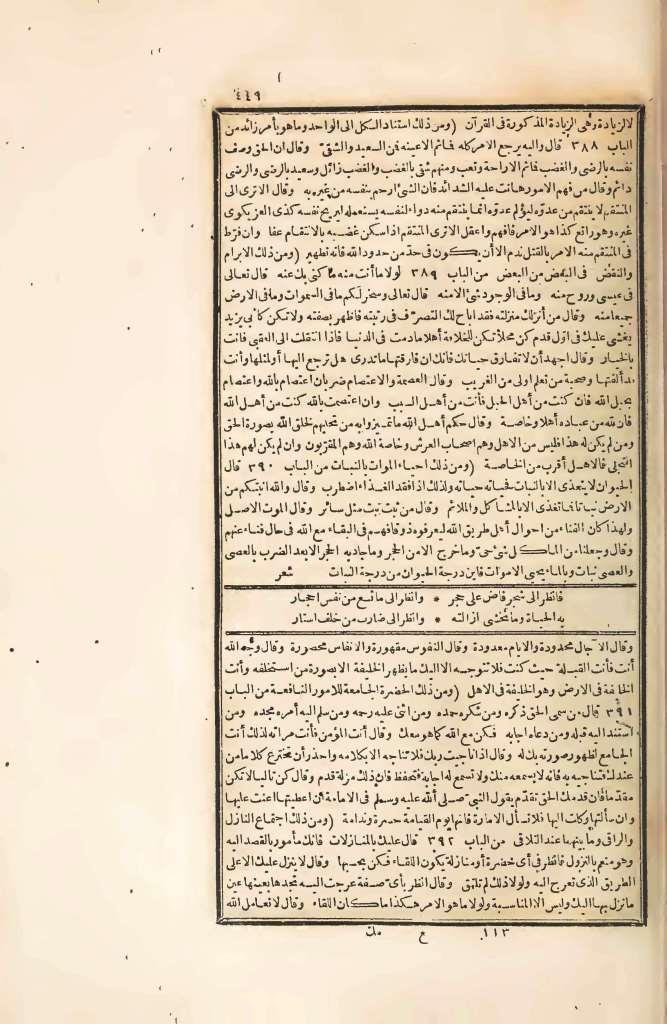 ٤٤٩
لا الزيادة وهى الزيادة المذكورة فى القرآن (ومن ذلك استناد الكل الى الواحد وما هو بأمر زائد من
الباب ٣٨٨ قال واليه يرجع الامر كله فما ثم الاعينه فمن السعيد والشقى وقال ان الحق وصف
نفسه بالرضى والغضب فما ثم الا راحة وتعب ومنهم شقى بالغضب والغضب زائل وسعيد بالرضى والرضى
دائم وقال من فهم الامور هانت عليه الشدائد فان الشئ ارحم بنفسه من غيره به وقال الا ترى الى
المنتقم لا ينتقم من عدوه ليؤلم عدوه انما ينتقم منه دواء لنفسه يستعمله ليريح نفسه كذى العز يكوى
غيره وهو راتع كذا هو الامر فافهم واعقل الا ترى المنتقم اذا سكن غضبه بالانتقام عفا وان فرط
فى المنتقم منه الامر بالقتل ندم الا أن يكون فى حد من حدود الله فانه تطهير (ومن ذلك الابرام
والنقض فى البعض من البعض من الباب ٣٨٩ لولا ما أنت منه ما كنى بك عنه قال تعالى
فى عيسى وروح منه وما فى الوجود شئ الا منه قال تعالى وسخر لكم ما فى السموات وما فى الارض
جميعا منه وقال من أنزلك منزلته فقد اباح لك التصرف فى رتبته فاظهر بصفته ولا تكن كابى يزيد
يغشى عليك فى اول قدم كن محلا تكن للخلافة أهلا ما دمت فى الدنيا فاذا انتقلت الى العقبى فانت
بالخيار وقال اجهد أن لا تفارق حياتك فانك ان فارقتها ما تدرى هل ترجع اليها أو لمثلها وأنت
قد ألفتها وصحبة من تعلم اولى من الغريب وقال العصمة والاعتصام ضربان اعتصام بالله واعتصام
بحبل الله فان كنت من أهل الحبل فأنت من أهل السبب وان اعتصمت بالله كنت من أهل الله
فان لله من عباده أهلا وخاصة وقال حكم أهل الله ما تميزوا به من تحليهم بخلق الله بصورة الحق
ومن لم يكن له هذا فليس من الاهل وهم اصحاب العرش وخاصة الله وهم المقربون وان لم يكن لهم هذا
التجلى فالاهل أقرب من الخاصة (ومن ذلك احياء الموات بالنبات من الباب ٣٩٠ قال
الحيوان لا يتغذى الا بالنبات فحياته حياته ولذلك اذا فقد الغذاء اضطرب وقال والله انبتكم من
الارض نباتا فما تغذى الا بالمشاكل والملائم وقال من ثبت نبت مثل سائر وقال الموت الاصل
ولهذا كان الفناء من احوال أهل طريق الله ليعرفوه ذوقا فهم فى البقاء مع الله فى حال فناء عنهم
وقال وجعلنا من الماء كل شئ حى وما خرج الا من الحجر وما جاد به الحجر الا بعد الضرب بالعصى
والعصى نبات وبالماء يحيى الاموات فاين درجة الحيوان من درجة النبات شعر
فانظر الى شجر قاض على حجر * وانظر الى مانع من نفس احجار
به الحياة وما تخشى ازالته * وانظر الى ضارب من خلف استار
وقال الآجال محدودة والايام معدودة وقال النفوس مقهورة والانفاس محصورة وقال وجه الله
أنت فأنت القبلة حيث كنت فلا تتوجه الا اليك ما يظهر الخليفة الا بصورة من استخلفه وأنت
الخليفة فى الارض وهو الخليفة فى الاهل (ومن ذلك الحضرة الجامعة للامور النافعة من الباب
٣٩١ قال من سمى الحق ذكره ومن شكره حمده ومن اثنى عليه رحمه ومن سلم اليه أمره مجده ومن
استند اليه قبله ومن دعاه اجابه فكن مع الله كما هو معك وقال أنت المؤمن فأنت مرآته لذلك أنت
الجامع لظهور صورته بك له وقال اذا ناجيت ربك فلا تناجه الا بكلامه واحذر أن تخترع كلاما من
عندك فتناجيه به فانه لا يسمعه منك ولا تسمع له اجابة فتحفظ فان ذلك مزلة قدم وقال كن تاليا لا تكن
مقدما فان قدمك الحق تقدم يقول النبى صلى الله عليه وسلم فى الامامة ان اعطيتها اعنت عليها
وان سألتها وكلت اليها فلا تسأل الامارة فانها يوم القيامة حسرة وندامة (ومن ذلك اجتماع النازل
والراقى وما بينهما عند التلاقى من الباب ٣٩٢ قال عليك بالمنازلات فانك مأمور بالقصد اليه
وهو منعم بالنزول فانظر فى أى حضرة أو منازلة يكون اللقاء فكن بحسبها وقال لا ينزل عليك الا على
الطريق الذى تعرج اليه ولولا ذلك لم تلتق وقال انظر بأى صفة عرجت اليه تجدها بعينها عين
ما نزل بها اليك وليس الا المناسبة ولولا ما هو الامر هكذا ما كان اللقاء وقال لا تعامل الله
١١٣ ع مك